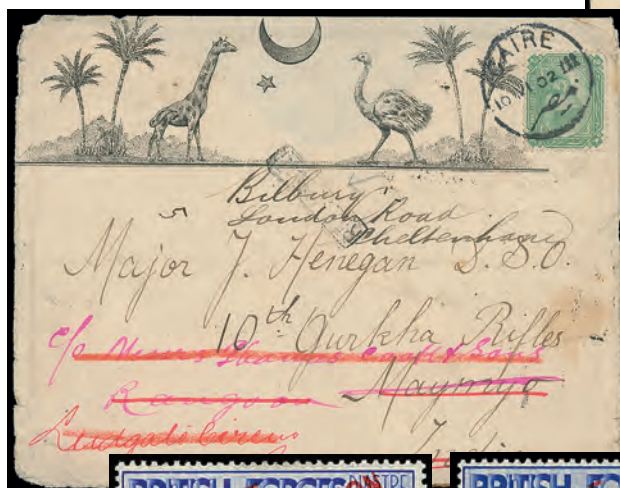 CAIRE
10 VI 02
Bilbury
London Road
Cheltenham
Major J. Henegan D.S.O.
10th Gurkha Rifles
c/o Messrs Thomas Cook & Sons
Maymyo
Rangoon
Ludgate Circus
India
BRITISH FORCES
PIASTRE
BRITISH FO